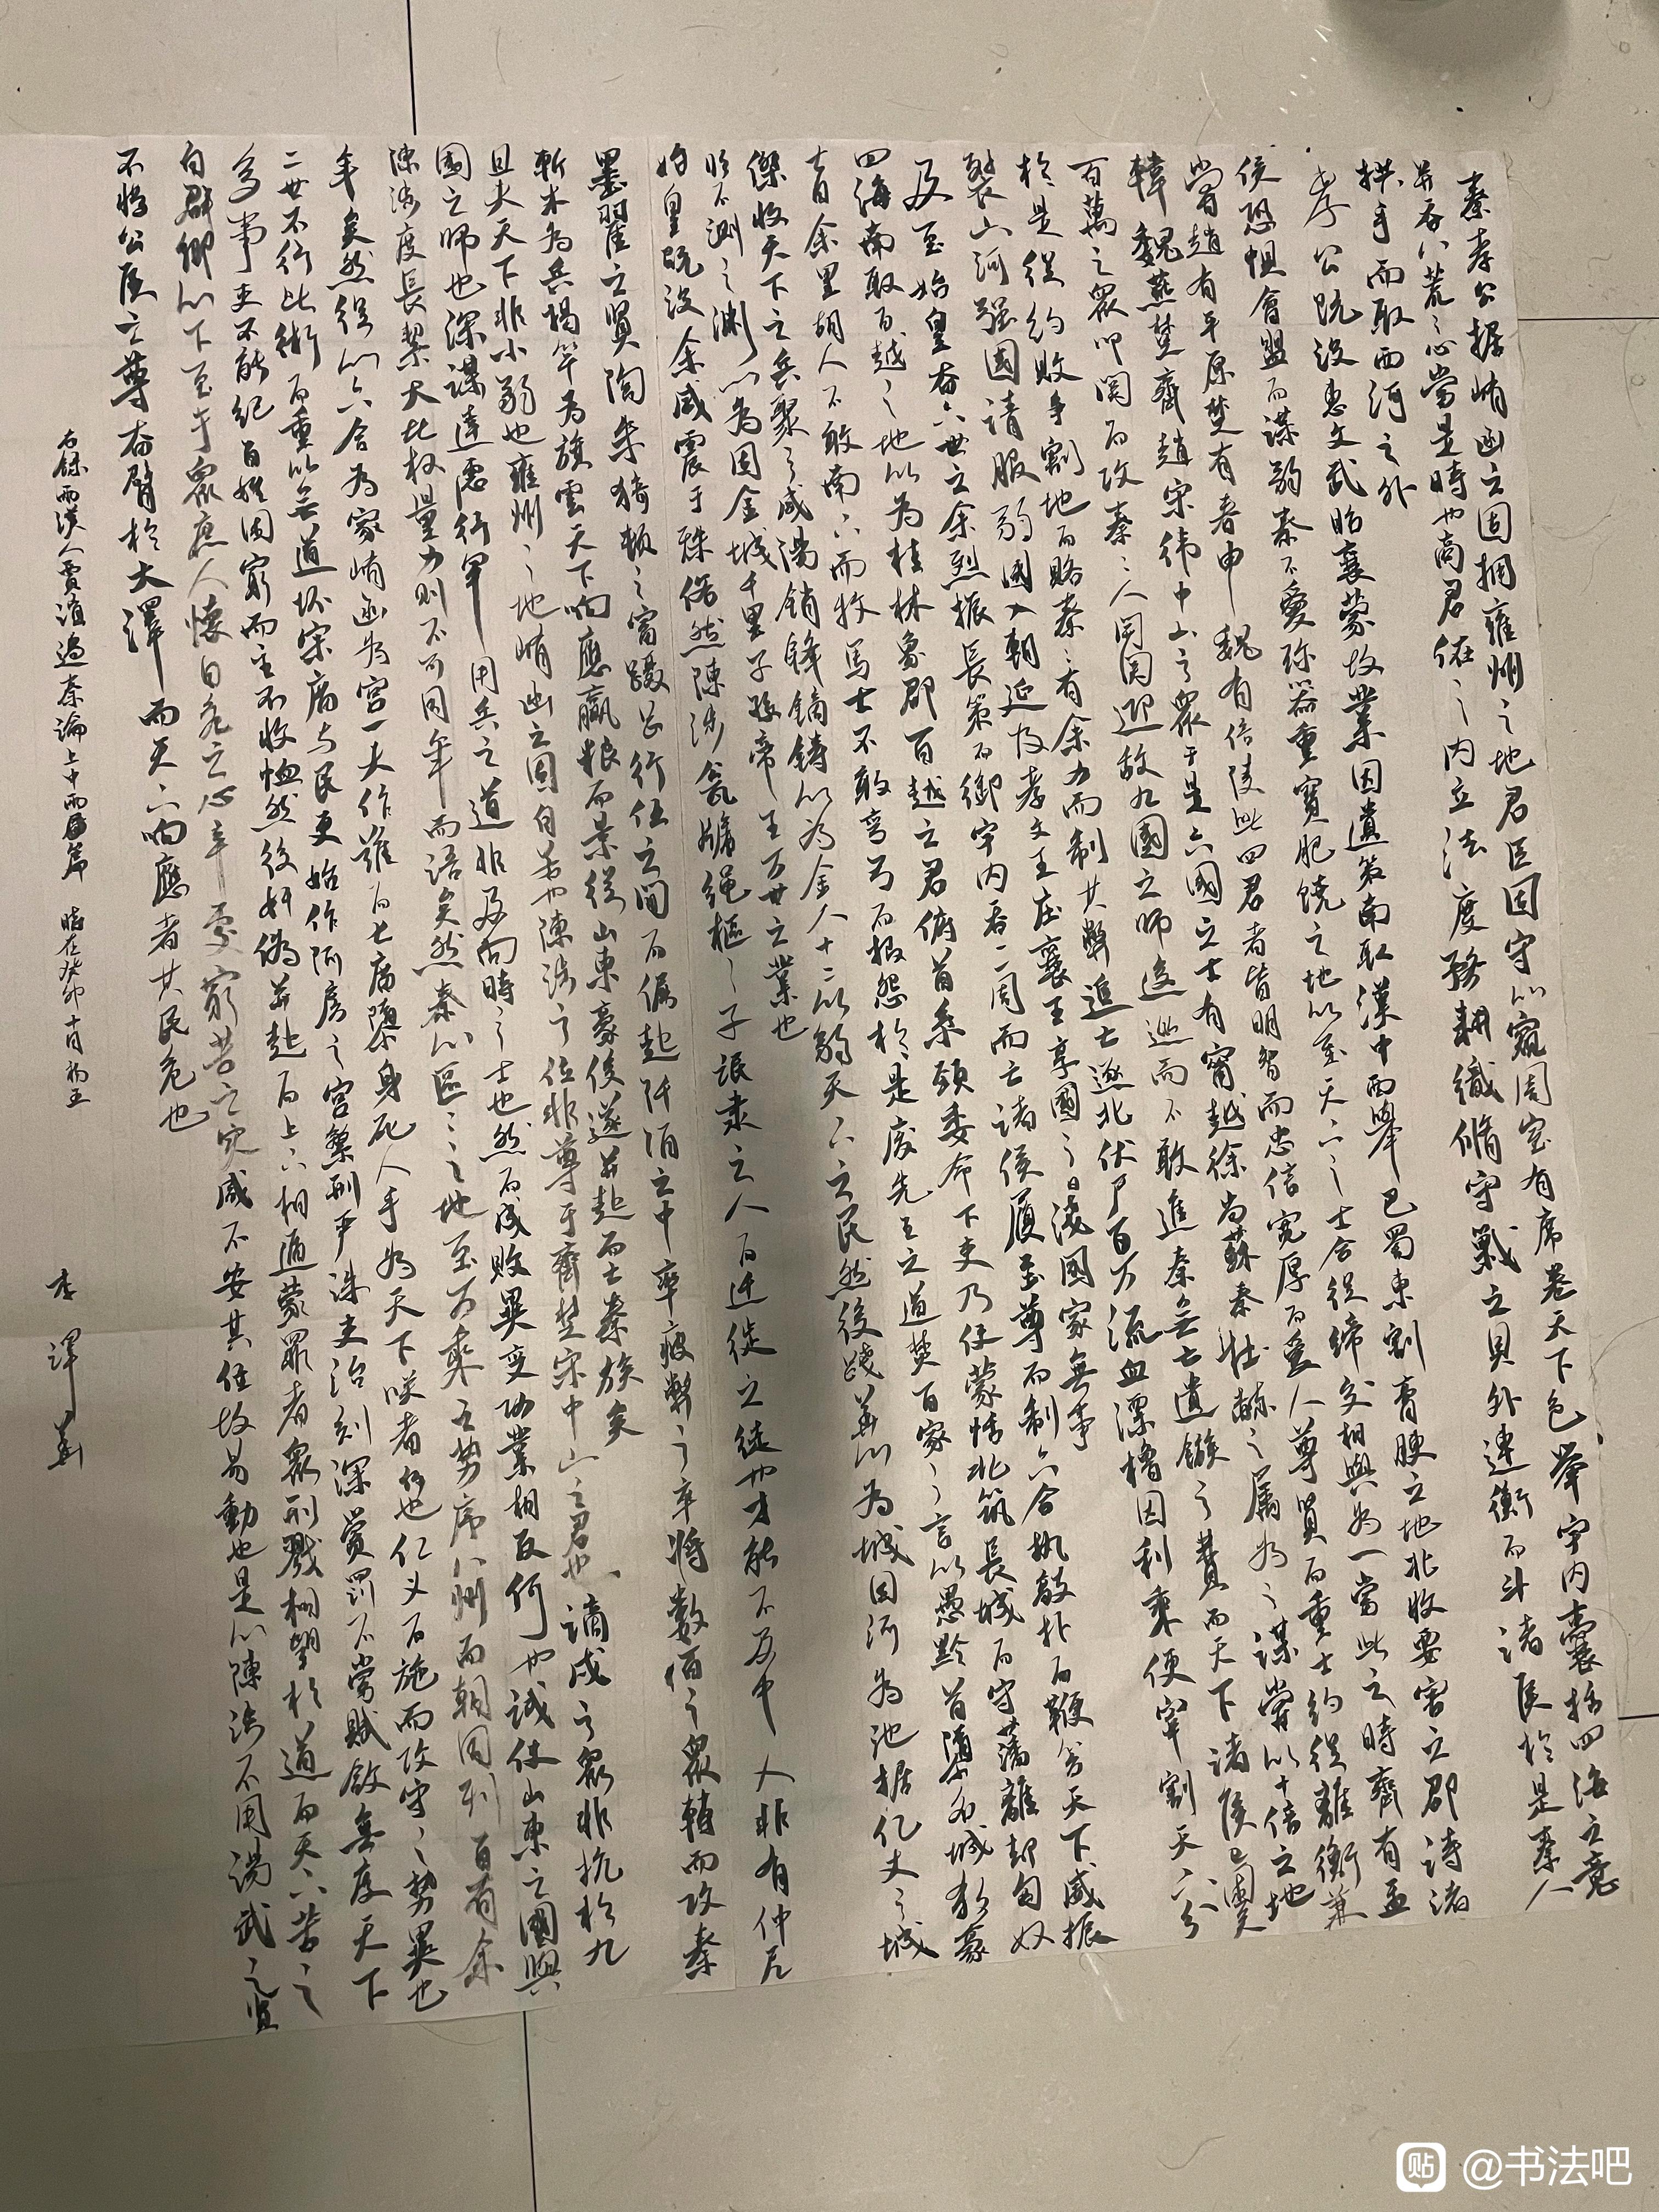 秦孝公据崤函之固拥雍州之地君臣固守以窥周室有席卷天下包举宇内囊括四海之意
并吞八荒之心當是時也商君佐之内立法度務耕織脩守戰之具外連衡而斗諸侯於是秦人
拱手而取西河之外
孝公既没惠文武昭襄蒙故業因遺策南取漢中西舉巴蜀東割膏腴之地北收要害之郡諸
侯恐惧會盟而謀弱秦不愛珍器重寶肥饶之地以至天下之士合従缔交相與为一當此之時齊有孟
嘗趙有平原楚有春申魏有信陵此四君者皆明智而忠信宽厚而愛人尊賢而重士约従離衡兼
韓魏燕楚齊趙宋衛中山之衆于是六國之士有甯越徐尚蘇秦杜赫之属为之謀嘗以十倍之地
百萬之衆叩関而攻秦秦人開関迎敌九國之師逡巡而不敢進秦無亡遺鏃之費而天下諸侯已困矣
於是従约敗争割地而賂秦秦有余力而制其弊追亡逐北伏尸百万流血漂櫓因利乘便宰割天下分
裂山河强國請服弱國入朝延及孝文王庄襄王享國之日浅國家無事
及至始皇奋六世之余烈振長策而御宇内吞二周而亡诸侯履至尊而制六合执敲扑而鞭笞天下威振
四海南取百越之地以为桂林象郡百越之君俯首系颈委命下吏乃使蒙恬北筑長城而守藩離却匈奴
七百余里胡人不敢南下而牧馬士不敢弯弓而报怨於是废先王之道焚百家之言以愚黔首隳名城杀豪
傑收天下之兵聚之咸陽銷鋒鏑鋳以为金人十二以弱天下之民然後踐華以为城因河为池据亿丈之城
临不測之渊以为固金城千里子孫帝王万世之業也
始皇既没余威震于殊俗然陳涉瓮牖绳樞之子氓隶之人而迁徙之徒也才能不及中人非有仲尼
墨翟之賢陶朱猗頓之富躡足行伍之間而倔起阡陌之中率疲弊之卒将數百之衆轉而攻秦
斬木为兵揭竿为旗雲天下响應贏粮而景從山東豪俊遂并起而亡秦族矣
且夫天下非小弱也雍州之地崤函之固自若也陳涉之位非尊于齊楚宋中山之君也謫戍之衆非抗於九
國之師也深謀遠慮行軍用兵之道非及向時之士也然而成敗異变功業相反何也誠使山東之國與
陳涉度長絜大比权量力則不可同年而语矣然秦以區區之地至万乘之势序八州而朝同列百有余
年矣然後以六合为家崤函为宫一夫作難而七庙隳身死人手为天下咲者何也仁义不施而攻守之勢異也
二世不行此術而重以無道坏宗廟与民更始作阿房之宮繁刑严诛吏治刻深賞罰不當賦斂無度天下
多事吏不能纪百姓困窮而主不收恤然後奸偽并起而上下相遁蒙罪者衆刑戮相望於道而天下苦之
自群卿以下至于衆庶人懷自危之心辛處窮苦之实咸不安其位故易動也是以陳涉不用湯武之賢
不恃公侯之尊奋臂於大澤而天下响應者其民危也
右録西漢人賈誼過秦論上中两篇 時在癸卯十月初五
李譯